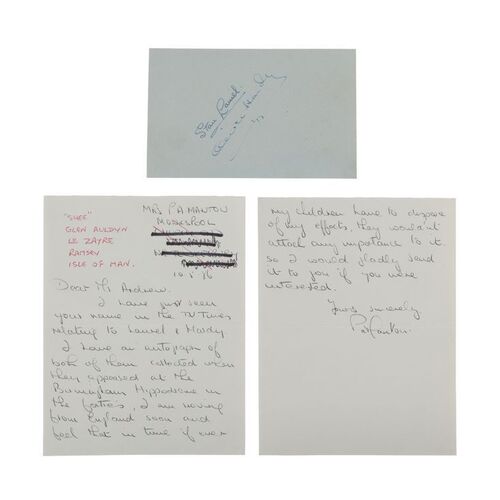 Stan Laurel
Oliver Hardy
"SHEE"
GLEN AULDYN
LE ZAYRE
RAMSEY
ISLE OF MAN.
MRS P A MANTON
MOSSESPOOL
Dear Mr Andrew.
I have just seen
your name in the TV Times
relating to Laurel & Hardy.
I have an autograph of
both of them collected when
they appeared at the
Birmingham Hippodrome in
the forties, I am moving
from England soon and
feel that in time if ever
my children have to dispose
of my effects, they wouldn't
attach any importance to it.
so I would gladly send
it to you if you were
interested.
Yours sincerely